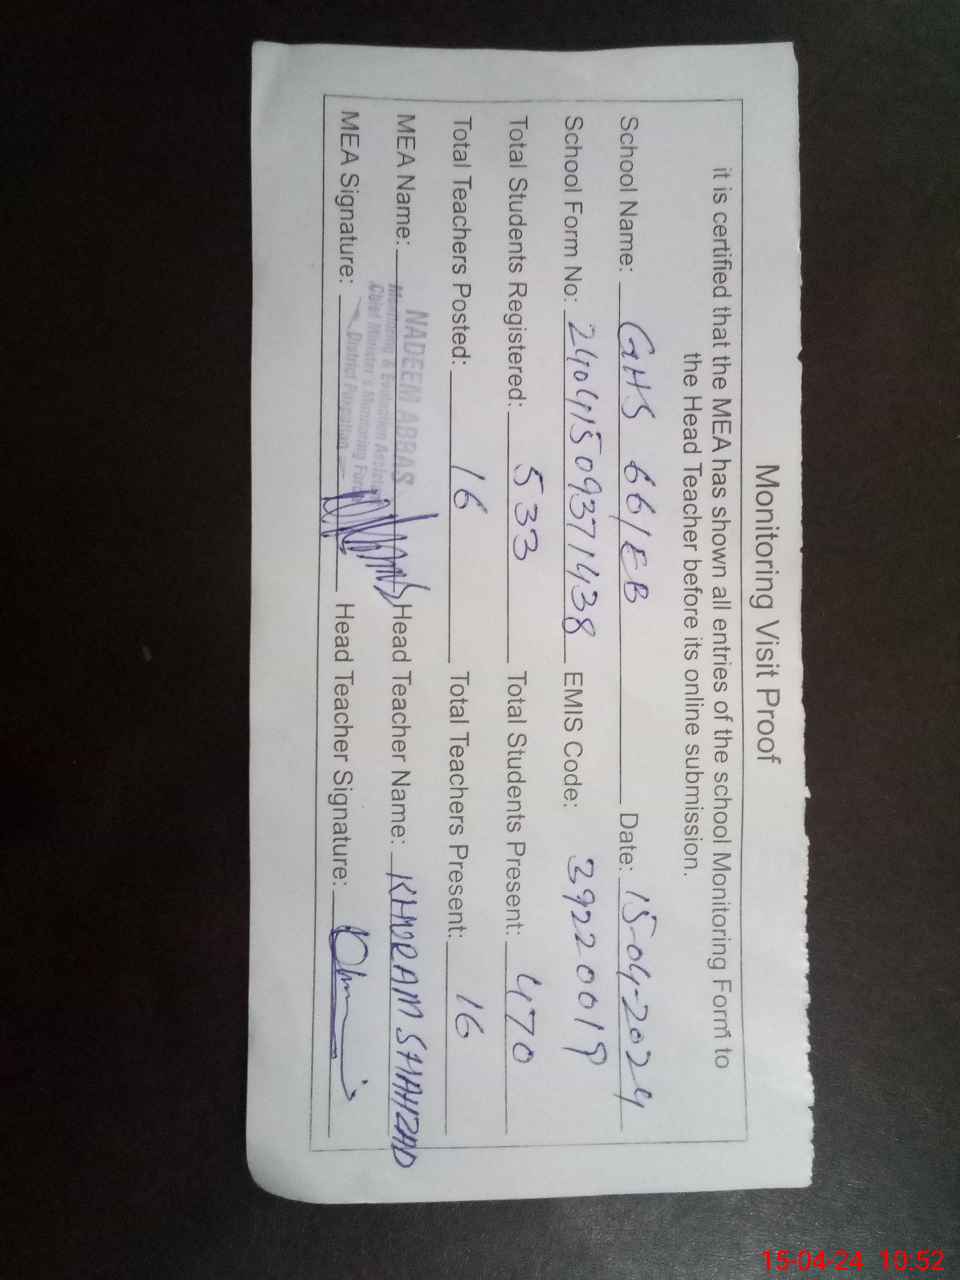 Monitoring Visit Proof
it is certified that the MEA has shown all entries of the school Monitoring Form to
the Head Teacher before its online submission.
School Name: GHS 66/EB Date: 15-04-2024
School Form No: 24041509371438 EMIS Code: 39220019
Total Students Registered: 533 Total Students Present: 470
Total Teachers Posted: 16 Total Teachers Present: 16
MEA Name: NADEEM ABBAS Head Teacher Name: KHURAM SHAHZAD
Monitoring & Evaluation Assistant
Chief Minister's Monitoring Force
District Pakpattan
MEA Signature: Head Teacher Signature:
15-04-24 10:52